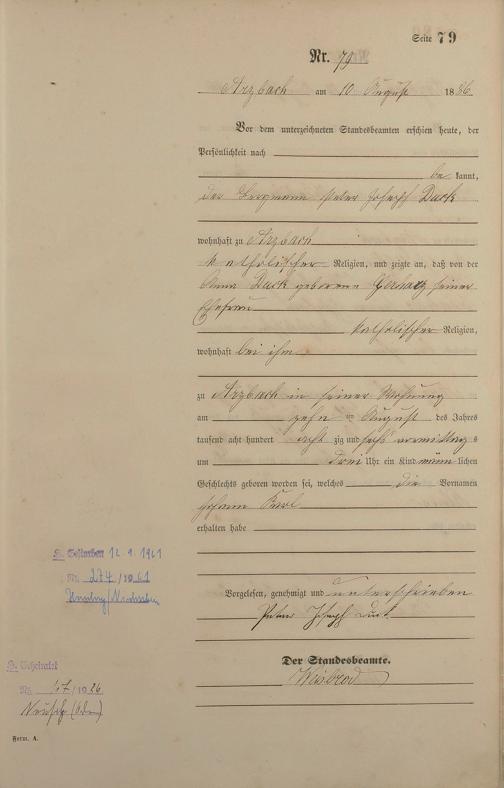 Seite 79
Nr. 79
Arzbach am 10 August 1886.
Vor dem unterzeichneten Standesbeamten erschien heute, der
Persönlichkeit nach
be kannt,
der Bergmann Peter Joseph Duck
wohnhaft zu Arzbach
katholischer Religion, und zeigte an, daß von der
Anna Duck geborene Gerharz seiner
Ehefrau
katholischer Religion,
wohnhaft bei ihm
zu Arzbach in seiner Wohnung
am zehn ten August des Jahres
tausend acht hundert acht zig und sechs vormittags
um drei Uhr ein Kind männlichen
Geschlechts geboren worden sei, welches die Vornamen
Johann Karl
erhalten habe
Vorgelesen, genehmigt und unterschrieben
Peter Joseph Duck
Der Standesbeamte.
Weisbrod
Gestorben 12.1.1961
Nr. 274/1961
Nr. 47/1926
Form. A.